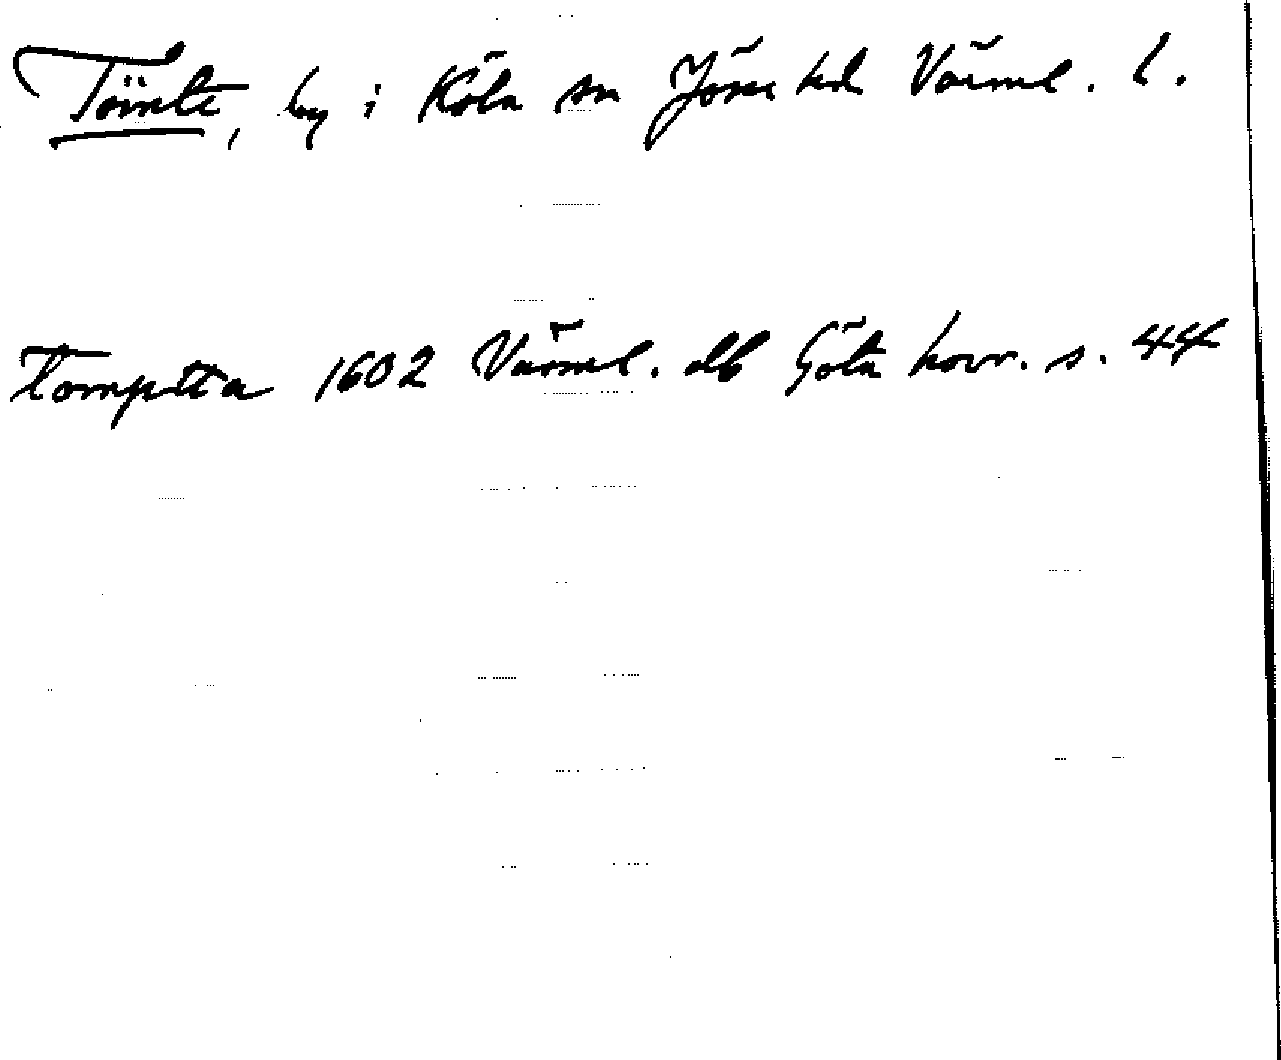 Tömte, by i Köla sn Jösse hd Värml. l.
Tompta 1602 Värml. db Göta hovr. s. 44